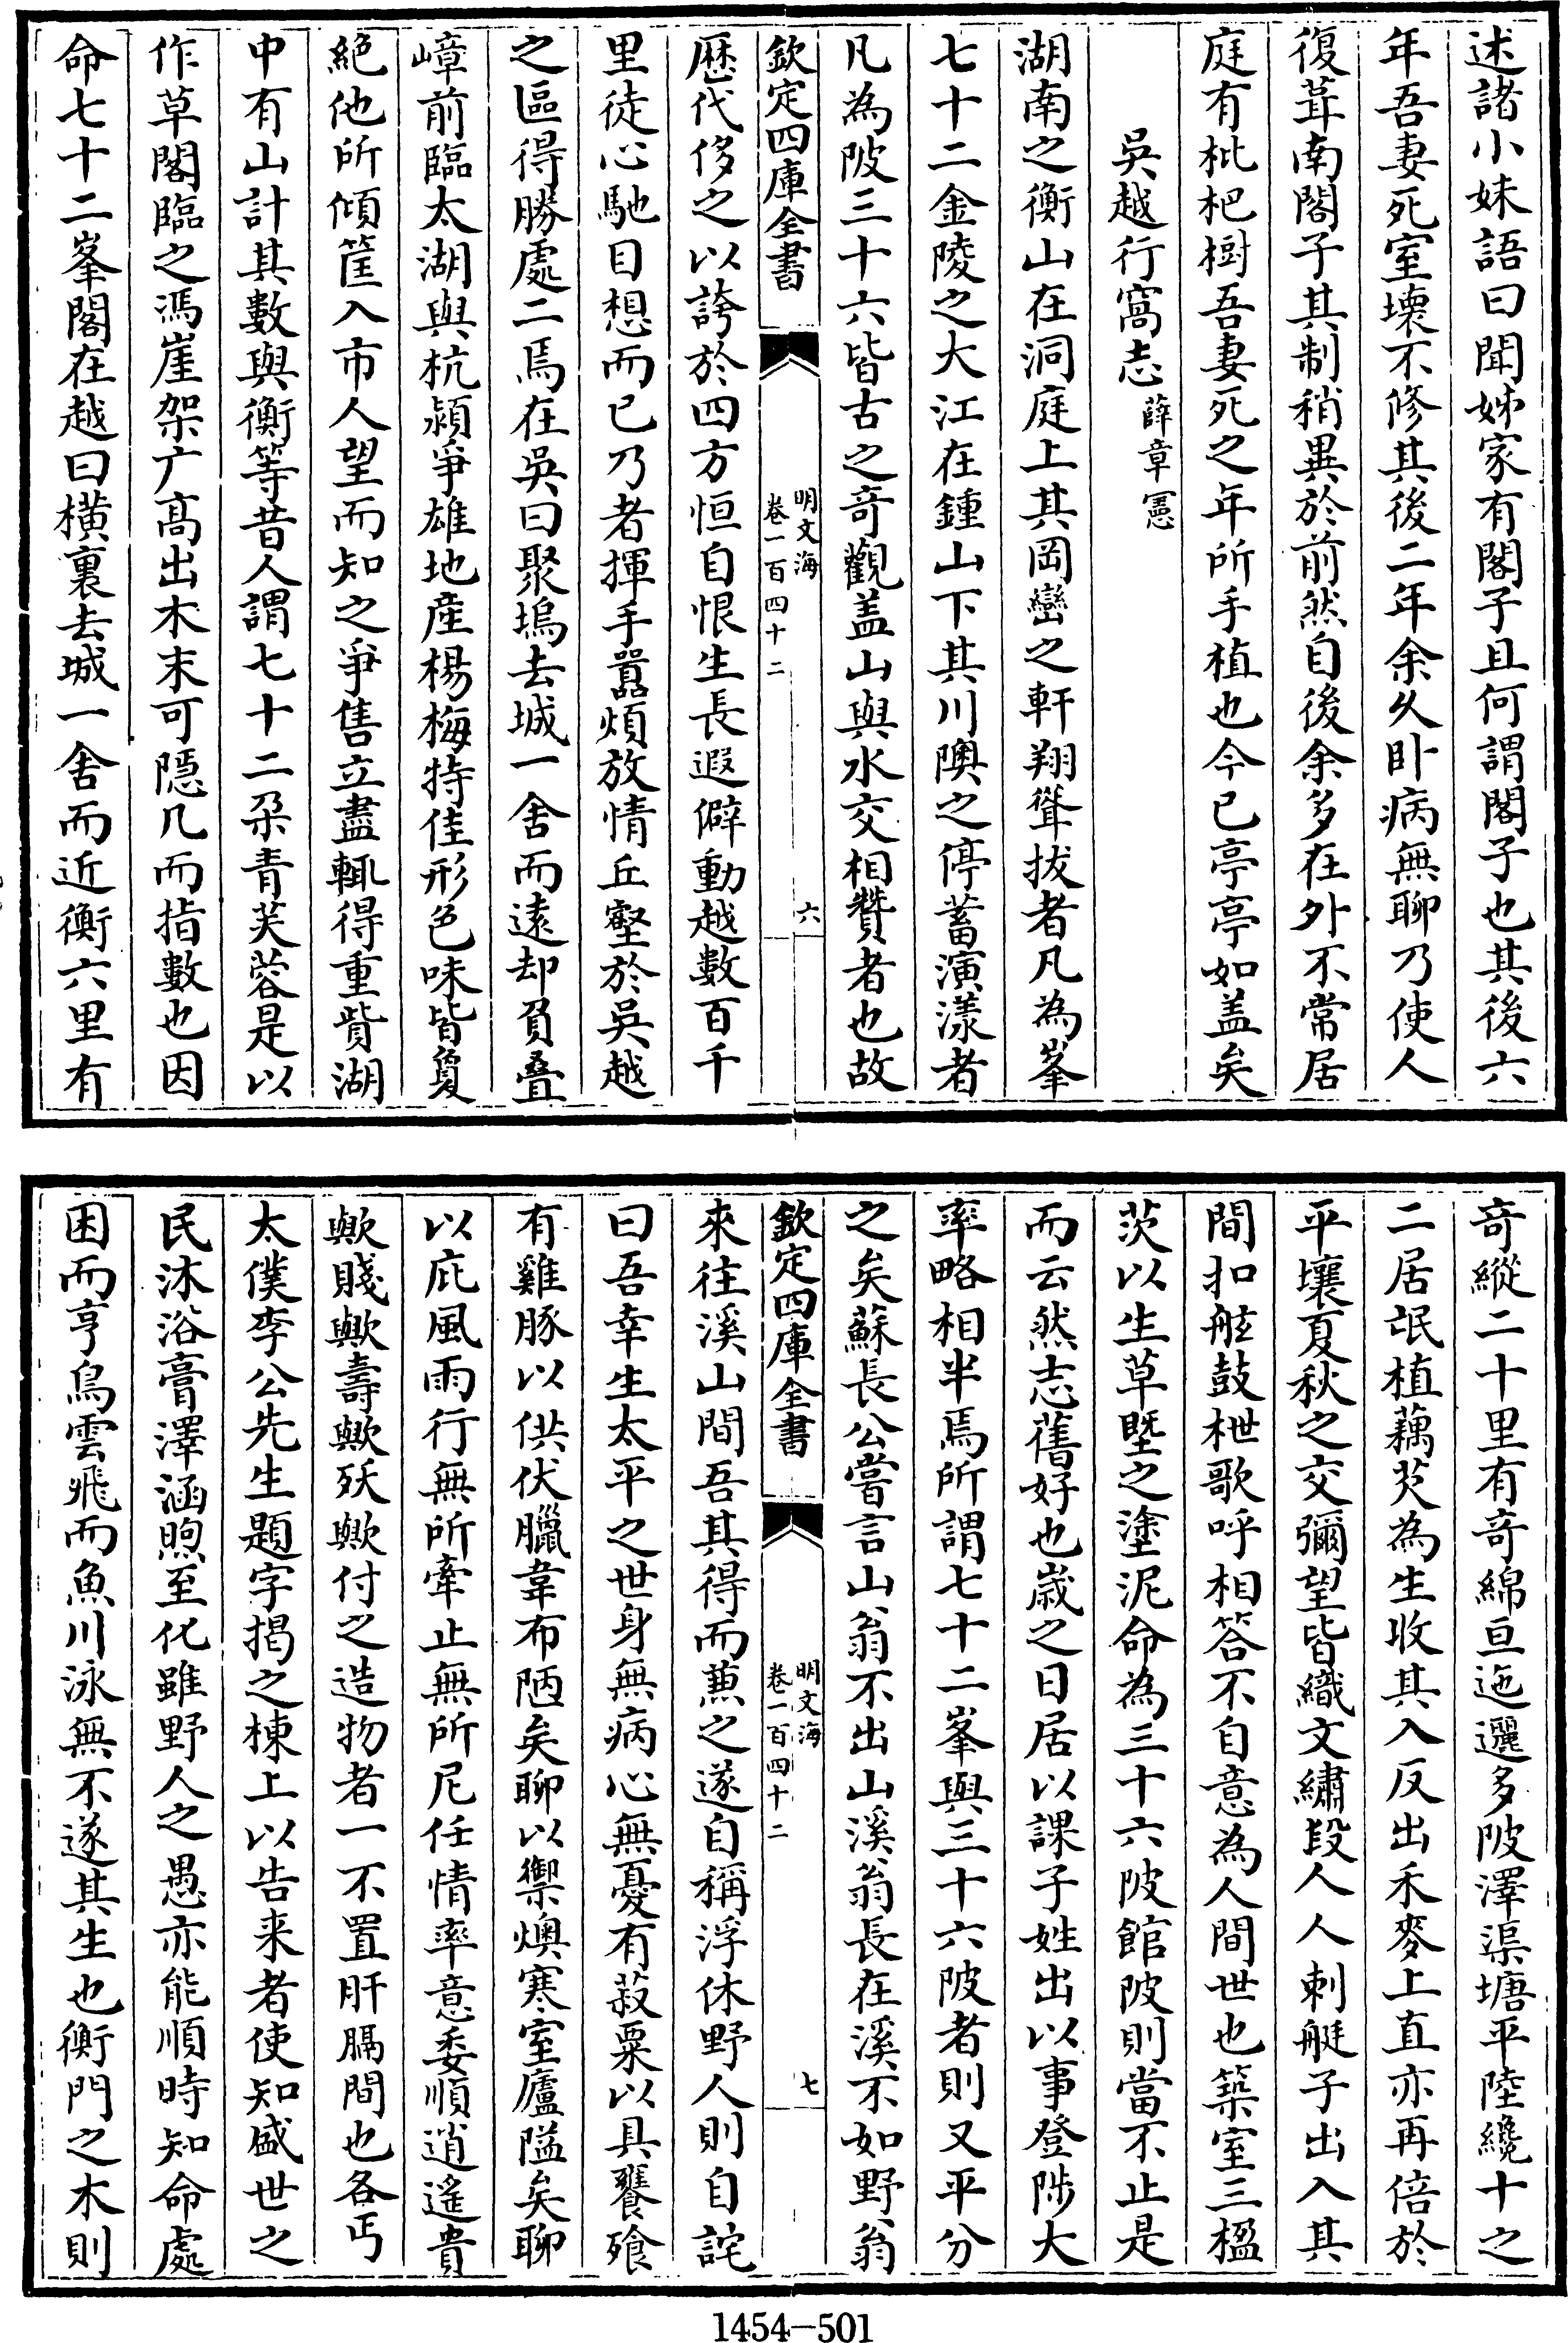 述諸小妹語曰聞姊家有閣子且何謂閣子也其後六
年吾妻死室壞不修其後二年余久卧病無聊乃使人
復葺南閣子其制稍異於前然自後余多在外不常居
庭有枇杷樹吾妻死之年所手植也今已亭亭如盖矣
吳越行窩志 薛章憲
湖南之衡山在洞庭上其岡巒之軒翔聳拔者凡為峯
七十二金陵之大江在鍾山下其川隩之停蓄演漾者
凡為陂三十六皆古之奇觀盖山與水交相贊者也故
欽定四庫全書
明文海
卷一百四十二
六
歴代侈之以誇於四方恒自恨生長遐僻動越數百千
里徒心馳目想而已乃者揮手嚣煩放情丘壑於吳越
之區得勝處二焉在吳曰聚塢去城一舍而逺却負叠
嶂前臨太湖與杭潁爭雄地産楊梅特佳形色味皆敻
絕他所傾筐入市人望而知之爭售立盡輒得重貲湖
中有山計其數與衡等昔人謂七十二朶青芙蓉是以
作草閣臨之馮崖架广髙出木末可隠几而指數也因
命七十二峯閣在越曰横裏去城一舍而近衡六里有
奇縱二十里有奇綿亘迤邐多陂澤渠塘平陸纔十之
二居氓植藕芡為生收其入反出禾麥上直亦再倍於
平壤夏秋之交彌望皆織文繡段人人刺艇子出入其
間扣舷鼓枻歌呼相答不自意為人間世也築室三楹
茨以生草塈之塗泥命為三十六陂館陂則當不止是
而云然志舊好也歳之日居以課子姓出以事登陟大
率略相半焉所謂七十二峯與三十六陂者則又平分
之矣蘇長公嘗言山翁不出山溪翁長在溪不如野翁
欽定四庫全書
明文海
卷一百四十二
七
來往溪山間吾其得而蒹之遂自稱浮休野人則自詫
曰吾幸生太平之世身無病心無憂有菽粟以具饔飱
有雞豚以供伏臘韋布陋矣聊以禦燠寒室廬隘矣聊
以庇風雨行無所牽止無所尼任情率意委順逍遙貴
歟賤歟壽歟殀歟付之造物者一不置肝膈間也各丐
太僕李公先生題字揭之棟上以告来者使知盛世之
民沐浴膏澤涵煦至化雖野人之愚亦能順時知命處
困而亨鳥雲飛而魚川泳無不遂其生也衡門之木則
1454—501